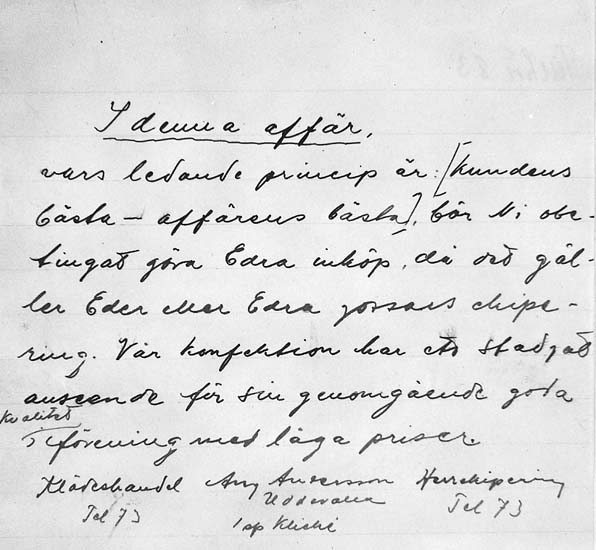 I denna affär,
vars ledande princip är: [kundens
bästa – affärens bästa], bör Ni obe-
tingat göra Edra inköp, då det gäl-
ler Eder eller Edra gossars ekipe-
ring. Vår konfektion har ett stadgat
anseende för sin genomgående goda
kvalitet
i förening med låga priser.
Klädeshandel Aug Andersson Herrekipering
Uddevalla
Tel 73 Tel 73
1 sp Kliché